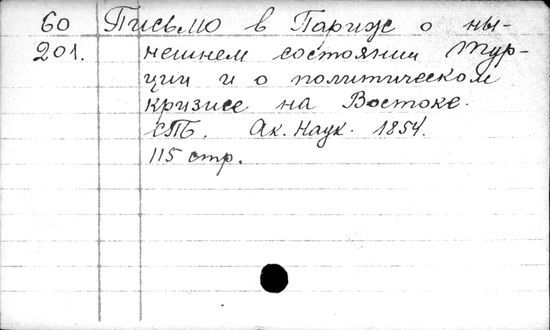 60 Письмо в Париж о ны-
201. нешнем состоянии Тур-
ции и о политическом
кризисе на Востоке.
СПБ. Ак. Наук. 1854.
115 стр.